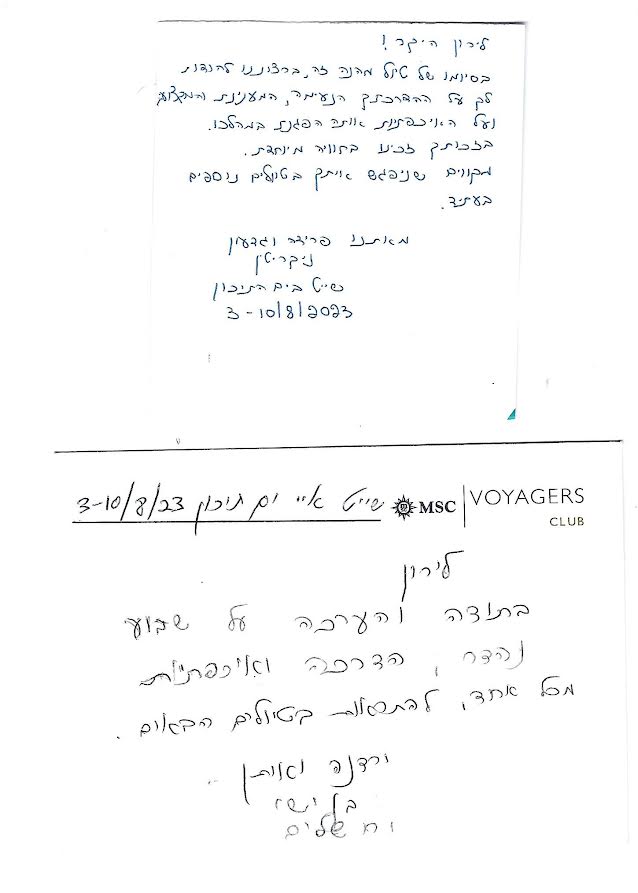 לירון היקר !
בסיומו של טיול מהנה זה, ברצוננו להודות
לך על ההדרכתך הנעימה, המענינת והמקצועית
ועל האיכפתיות אותה הפגנת במהלכו.
בזכותך זכינו בחוויה מיוחדת.
מקווים שניפגש אויתך בטיולים נוספים
בעתיד.
מאתנו פרידה וגדעון
שייט בים התיכון
3-10/8/2023
שייט איי ים תיכון 3-10/8/23
MSC VOYAGERS
CLUB
לירון
בתודה והערכה על שבוע
נהדר, הדרכה ואיכפתיות
מכל אחד, להתראות בטיולים הבאים.
ורדנה
בן ישי